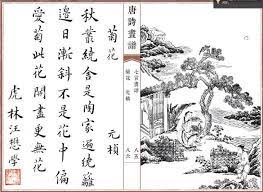 唐詩畫譜
七言畫譜
菊花 元稹
八五
八六
菊花 元稹
秋叢繞舍是陶家遍繞籬
邊日漸斜不是花中偏
愛菊此花開盡更無花
虎林汪懋學